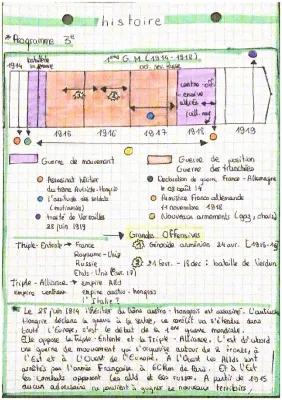 histoire
* Programme 3e
1ère G.M (1914-1918)
1914
bataille de la Marne
oct. rev. russe
contre-off-
ensive
alliés
1915
1916
1917
1918
1919
Guerre de mouvement
Guerre de position
Guerre des tranchées
Assassinat héritier
du trône Autriche-Hongrie
Déclaration de guerre France - Allemagne
le 03 août 14
Armistice Franco allemande
11 novembre 1918
(mutineries)
traité de Versailles
28 juin 1919
Nouveaux armements (gaz, chars)
Grandes Offensives
Triple-Entente → France
Royaume-Uni
Russie
① Génocide arménien 24 avr. (1915-16)
② 21 fevr. - 18 dec : bataille de Verdun
Triple-Alliance → empire Alld
empire centraux
empire austro-hongrois
l'Italie ?
Le 28 juin 1914 l'héritier du trône austro-hongrois est assassiné. L'Autriche
Hongrie déclare la guerre à la serbie, un conflit va s'étendre dans
toute l'Europe, c'est le début de la 1ère guerre mondiale.
Elle oppose la Triple-Entente et la Triple-Alliance. C'est d'abord
une guerre de mouvement qui s'organise autour de 2 fronts, à
l'Est et à l'Ouest de l'Europe. A l'Ouest les Allds sont
arrêtés par l'armée Française à 60km de Paris. Et à l'Est
les combats opposent les alld et les russes. A partir de 1915
aucun adversaire ne parvient à gagner de nouveaux territoires.